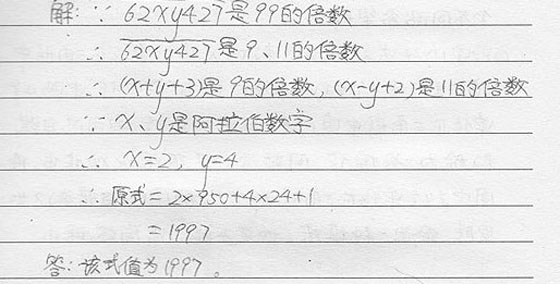 解:∵ 62xy427是99的倍数
∴ 62xy427是9、11的倍数
∴ (x+y+3)是9的倍数,(x-y+2)是11的倍数
∵ x、y是阿拉伯数字
∴ x=2, y=4
∴ 原式=2×950+4×24+1
=1997
答:该式值为1997。